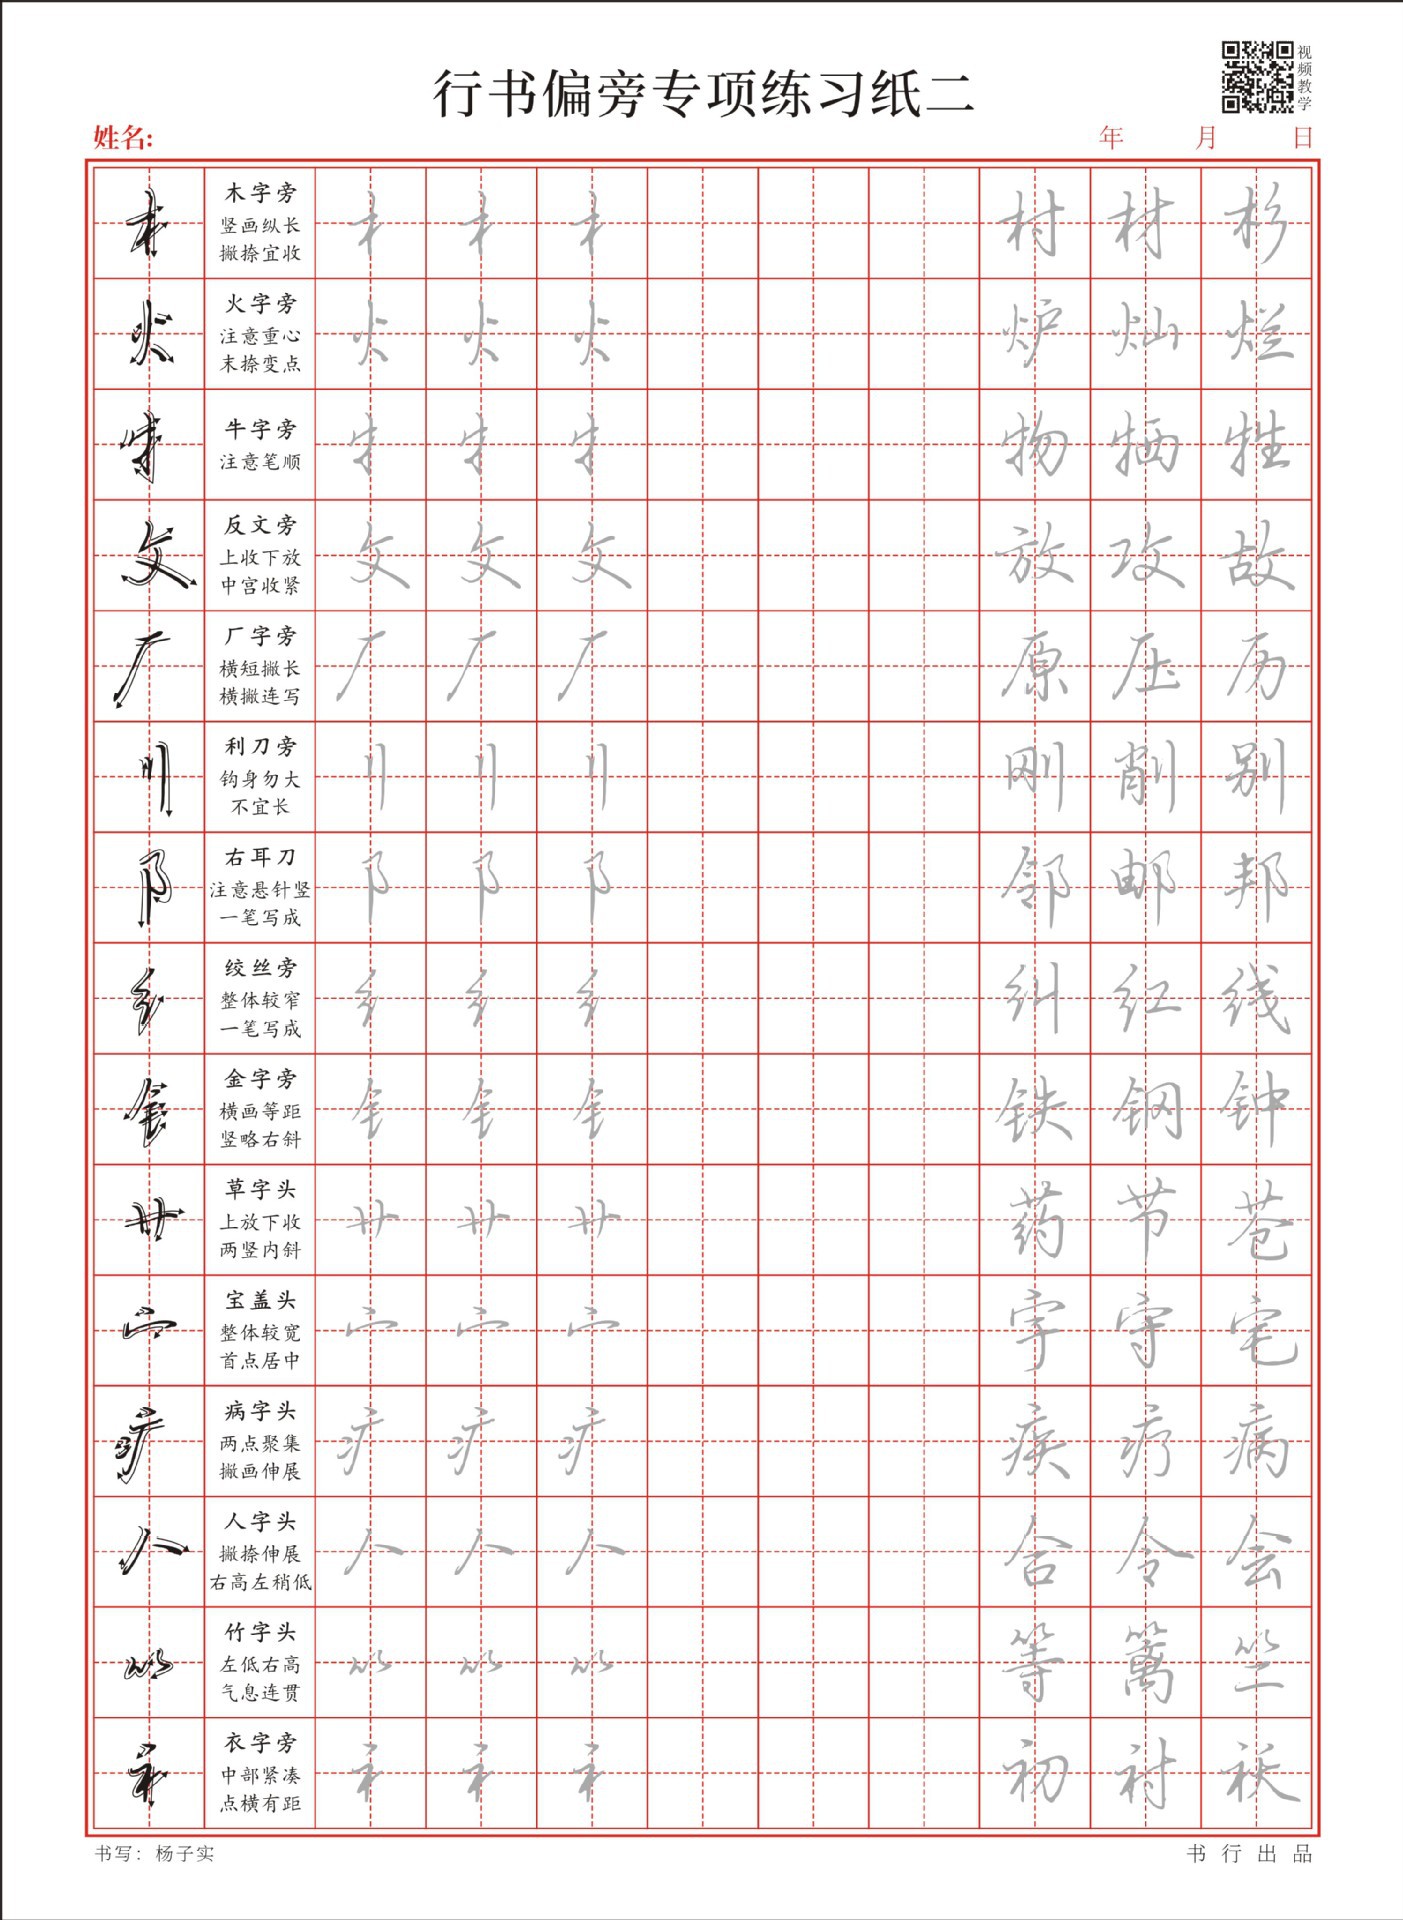 行书偏旁专项练习纸二
视频教学
姓名:
年 月 日
木字旁
竖画纵长
撇捺宜收
村 材 杉
火字旁
注意重心
末捺变点
炉 灿 烂
牛字旁
注意笔顺
物 牺 牲
反文旁
上收下放
中宫收紧
放 攻 故
厂字旁
横短撇长
横撇连写
厂 厂 厂
原 压 历
利刀旁
钩身勿大
不宜长
刂 刂 刂
刚 削 别
右耳刀
注意悬针竖
一笔写成
阝 阝 阝
邻 邮 邦
绞丝旁
整体较窄
一笔写成
纟 纟 纟
纠 红 线
金字旁
横画等距
竖略右斜
钅 钅 钅
铁 钢 钟
草字头
上放下收
两竖内斜
艹 艹 艹
药 节 苍
宝盖头
整体较宽
首点居中
宀 宀 宀
字 守 宅
病字头
两点聚集
撇画伸展
疒 疒 疒
疾 疗 病
人字头
撇捺伸展
右高左稍低
人 人 人
合 令 会
竹字头
左低右高
气息连贯
等 篱 竺
衣字旁
中部紧凑
点横有距
衤 衤 衤
初 衬 袄
书写：杨子实
书行出品